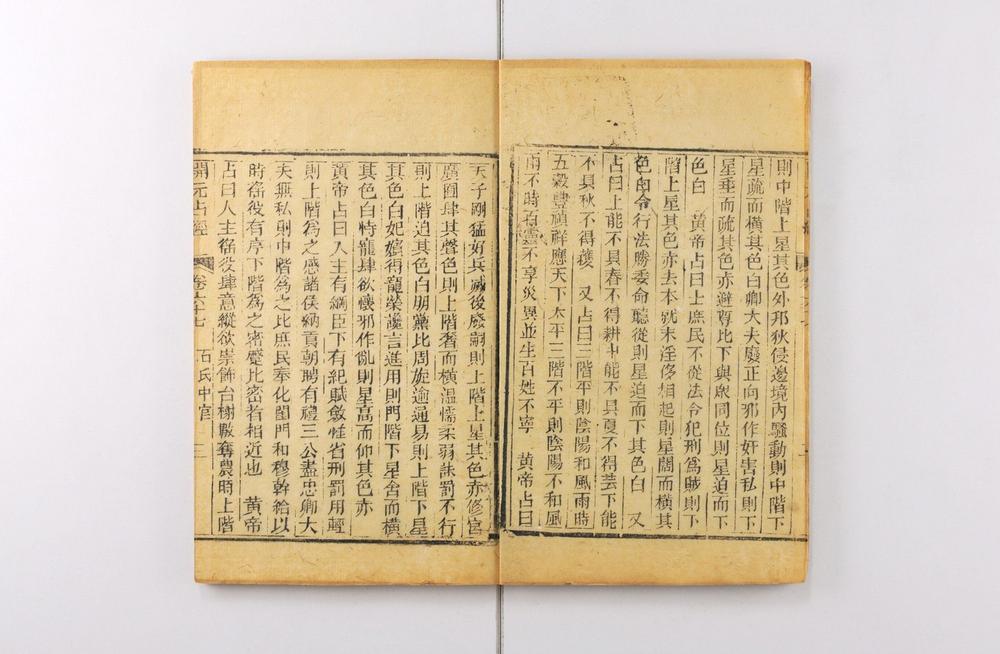 則中階上星其色外邦狄侵邊境內騷動則中階下
星疏而橫其色白卿大夫廢正向邪作奸害私則下
星垂而疏其色赤避尊比下與衆同位則星迫而下
色白　黃帝占曰上庶民不從法令犯刑爲賊則下
階上星其色赤去本就末淫侈相起則星闊而橫其
色白令行法勝委命聽從則星迫而下其色白　又
占曰上能不具春不得耕中能不具夏不得芸下能
不具秋不得穫　又占曰三階平則陰陽和風雨時
五穀豐禎祥應天下太平三階不平則陰陽不和風
雨不時百靈不享災異並生百姓不寧　黃帝占曰
天子剛猛好兵滅後廢嗣則上階上星其色赤修宮
廣囿肆其聲色則上階奢而橫溫懦柔弱誅罰不行
則上階迫其色白朋黨比周旋逾通易則上階下星
其色白妃嬪得寵榮讒言進用則門階下星舍而橫
其色白恃寵肆欲懷邪作亂則星高而仰其色赤
黃帝占曰人主有綱臣下有紀賦斂惟省刑罰用輕
則上階爲之感諸侯納貢朝聘有禮三公盡忠卿大
夫無私則中階爲之比庶民奉化閨門和穆幹給以
時徭役有序下階爲之密蹙比密者相近也　黃帝
占曰人主徭役肆意縱欲崇飾台榭數奪農時上階
開元占經　卷六十七　石氏中官　三